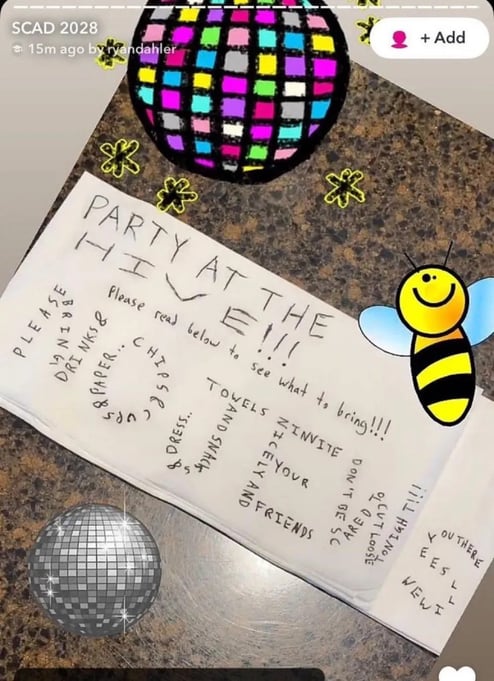 SCAD 2028
15m ago by ryandahler
+ Add
PARTY AT THE
HIVE!!!
Please read below to see what to bring!!!
PLEASE
BRING
DRINKS &
CHIPS &
CUPS
& PAPER..
TOWELS
AND SNACKS
& DRESS..
NICELY AND
INVITE
YOUR
FRIENDS
DON'T BE SC
ARED T
O CUT LOOSE
TONIGHT!!!
YOU THERE